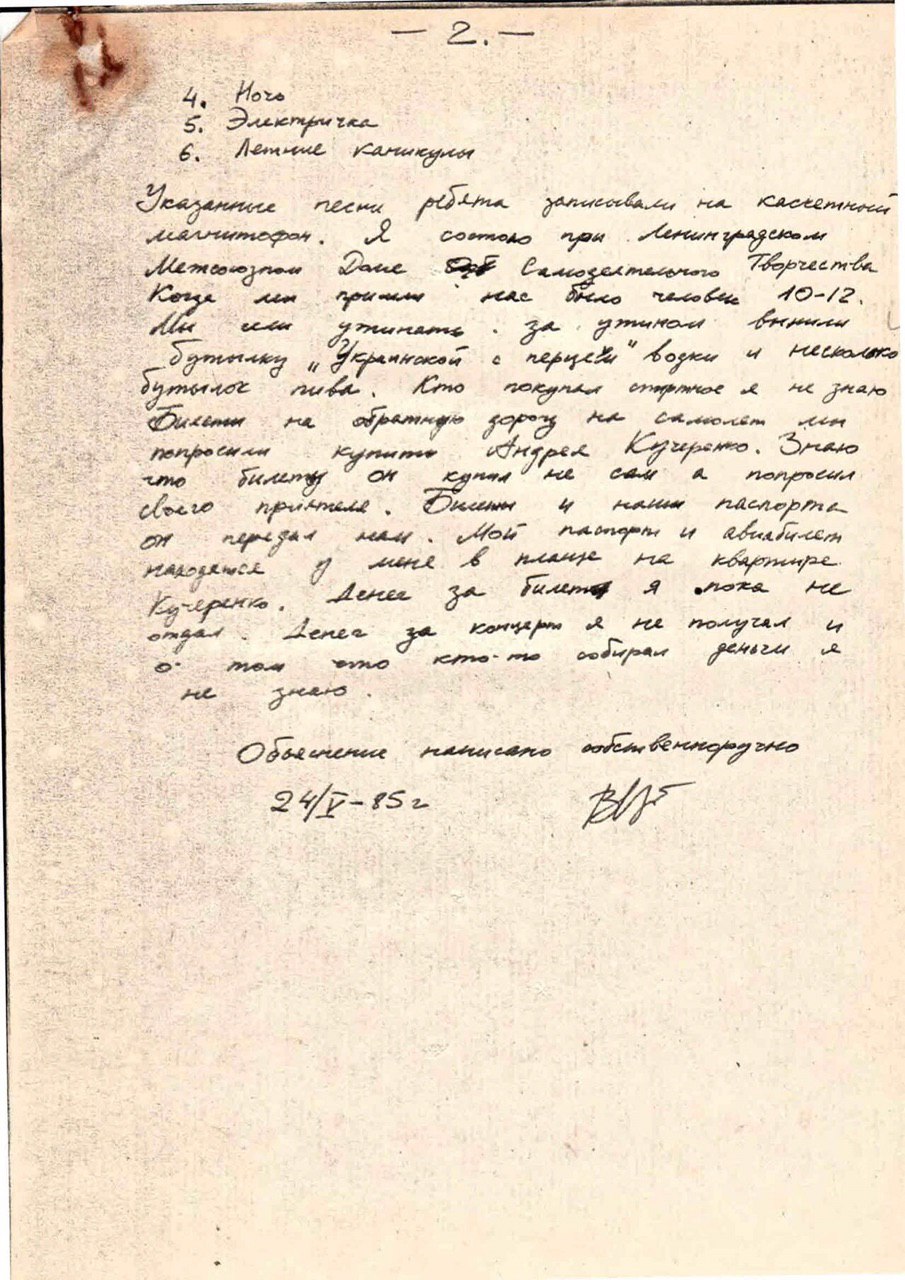 — 2. —
4. Ночь
5. Электричка
6. Летние каникулы
Указанные песни ребята записывали на кассетный
магнитофон. Я состою при Ленинградском
Межсоюзном Доме Самодеятельного Творчества
Когда мы пришли нас было человек 10-12.
Мы сели ужинать. за ужином выпили
бутылку „Украинской с перцем" водки и несколько
бутылок пива. Кто покупал спиртное я не знаю
Билеты на обратную дорогу на самолет мы
попросили купить Андрея Кучеренко. Знаю
что билеты он купил не сам а попросил
своего приятеля. Билеты и наши паспорта
он передал нам. Мой паспорт и авиабилет
находятся у меня в плаще на квартире
Кучеренко. Денег за билеты я пока не
отдал. Денег за концерт я не получал и
о том что кто-то собирал деньги я
не знаю.
Объяснение написано собственноручно
24/V-85г